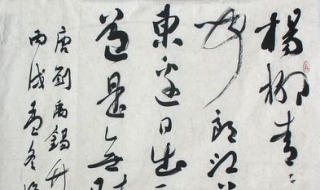 楊柳青〻
聞郎江
東邊日出
道是無
唐劉禹錫竹
丙戌孟冬